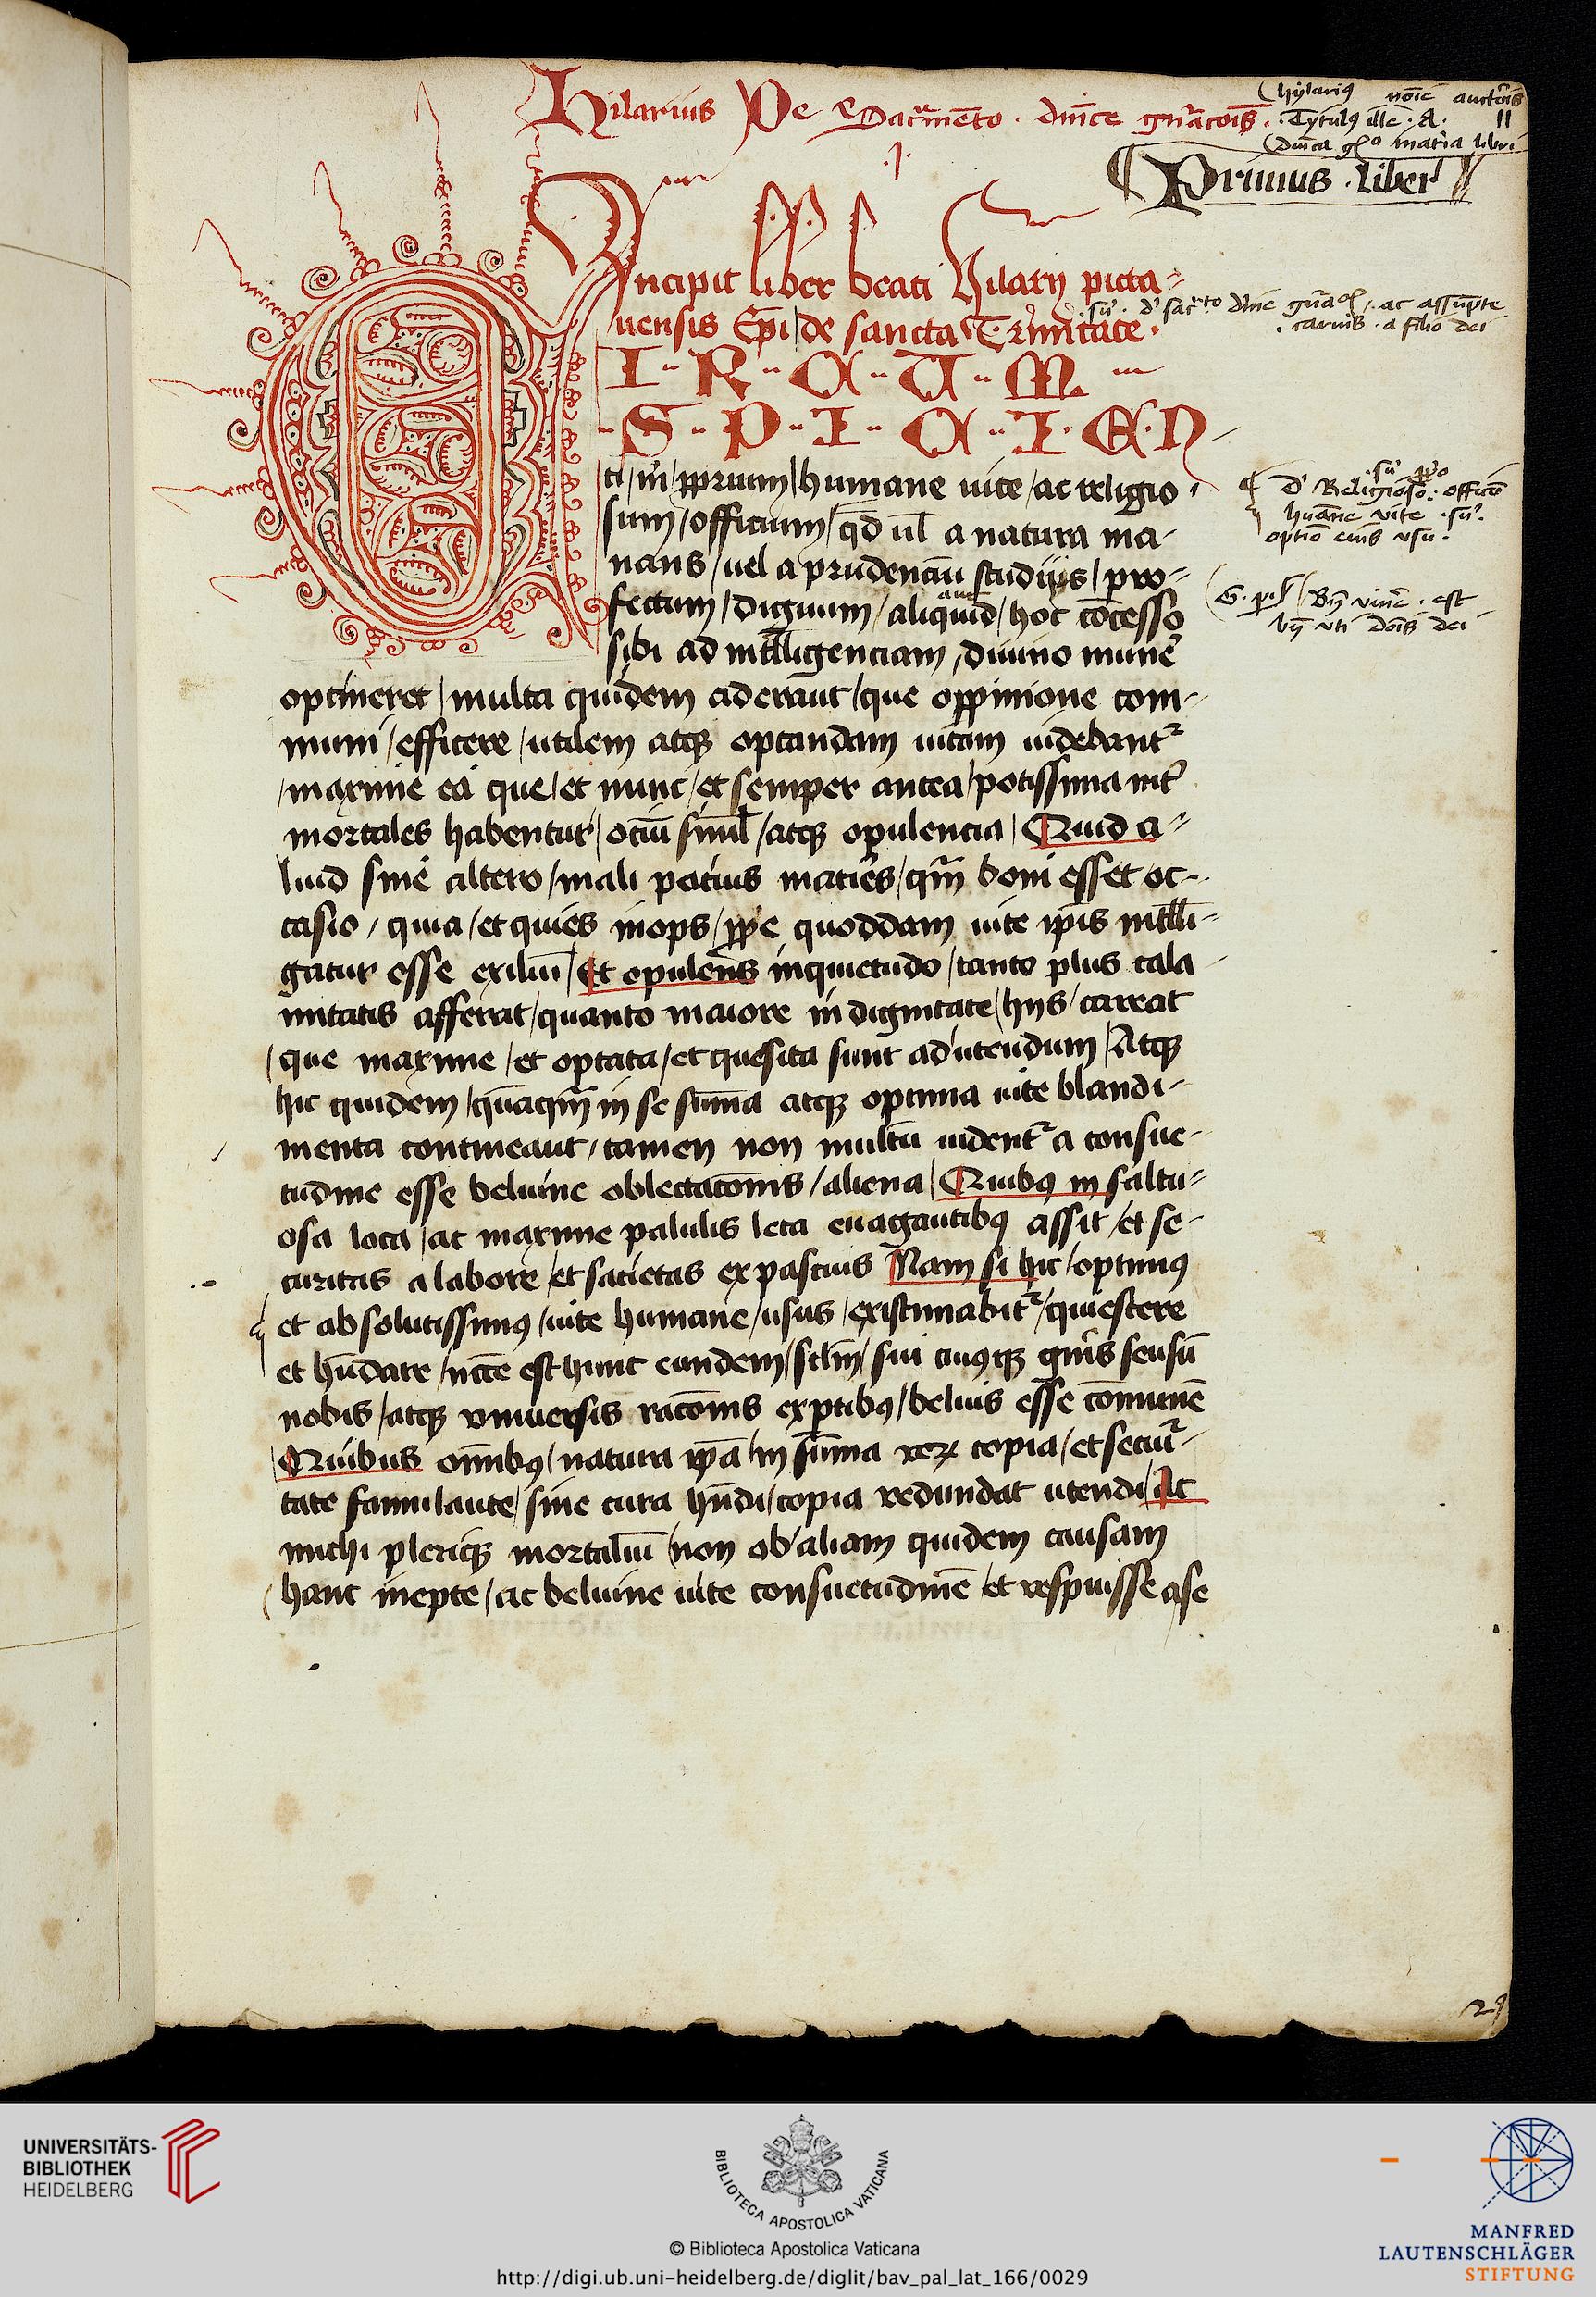 Hilarius De Sacramento . diuīe gnracōis .
.I.
hylariꝰ noīe auctoris
Tytulꝰ ille . A. II
diuīa materia libri
Primus . liber
Incipit liber beati hilarij picta-
uensis Epī de sancta Trinitate .
.sꝫ. d' sacrto diuīe ac assūpte
. carnis . a filio dei
C I R C U M
S P I C I E N
ti / m̄ / pprium / humane uite / ac religio
sum / officium / qd̄ ul̄ a natura ma-
nans / uel a prudenciū studijs / pro-
fectum / dignum / aliquid / hoc cōcesso
sibi ad intelligenciam / diuino munē
optineret / multa quidem aderant / que oppinione com-
muni / efficere / utilem atqꝫ optandam uitam uidebantr
/ maxime ea que / et nunc / et semper antea / potissima int̄
mortales habentur / ociū siml̄ / atqꝫ opulencia / Quid a-
liud sine altero / mali pocius maties / qm̄ boni esset oc-
casio / quia / et quies inops / ppe quoddam uite ipīs intelli-
gatur esse exiliū / Et opulens inquietudo / tanto plus cala-
mitatis afferat / quanto maiore indignitate / hijs / careat
/ que maxime / et optata / et quesita sunt ad utendum / Atqꝫ
hic quidem / quāqm̄ in se sūma atqꝫ optima uite blandi-
menta contineant / tamen non multū uidentr a consue-
tudine esse beluine oblectacōnis / aliena / Quibꝰ in saltu-
osa loca / ac maxime palulis leta euagantibꝰ assit / et se-
curitas a labore / et sacietas ex pascuis Nam si hic / optimꝰ
et absolutissimꝰ / uite humane / usus / existimabitr / quiescere
et hūdare / nccē est hunc eundem / scl̄m / sui cuiusqꝫ gnr̄is sensū
nobis / atqꝫ vniuersis racōnis exptibꝰ / beluis esse cōmunē
Quibus omībꝰ / natura ipā / in sūma reꝝ copia / et secur-
tate famulante / sine cura hn̄di / copia redundat utendi / Ac
michi pleriqꝫ mortaliū / non ob aliam quidem causam
hanc inepte / ac beluine uite consuetudinē et respuisse a se
.sꝫ. ppō
D' Religioso : officio
huāne vite .sꝫ.
optio eius vsū .
Bn̄ viuē . est
bn̄ vti dōis dei
UNIVERSITÄTS-
BIBLIOTHEK
HEIDELBERG
BIBLIOTECA APOSTOLICA VATICANA
© Biblioteca Apostolica Vaticana
http://digi.ub.uni-heidelberg.de/diglit/bav_pal_lat_166/0029
MANFRED
LAUTENSCHLÄGER
STIFTUNG